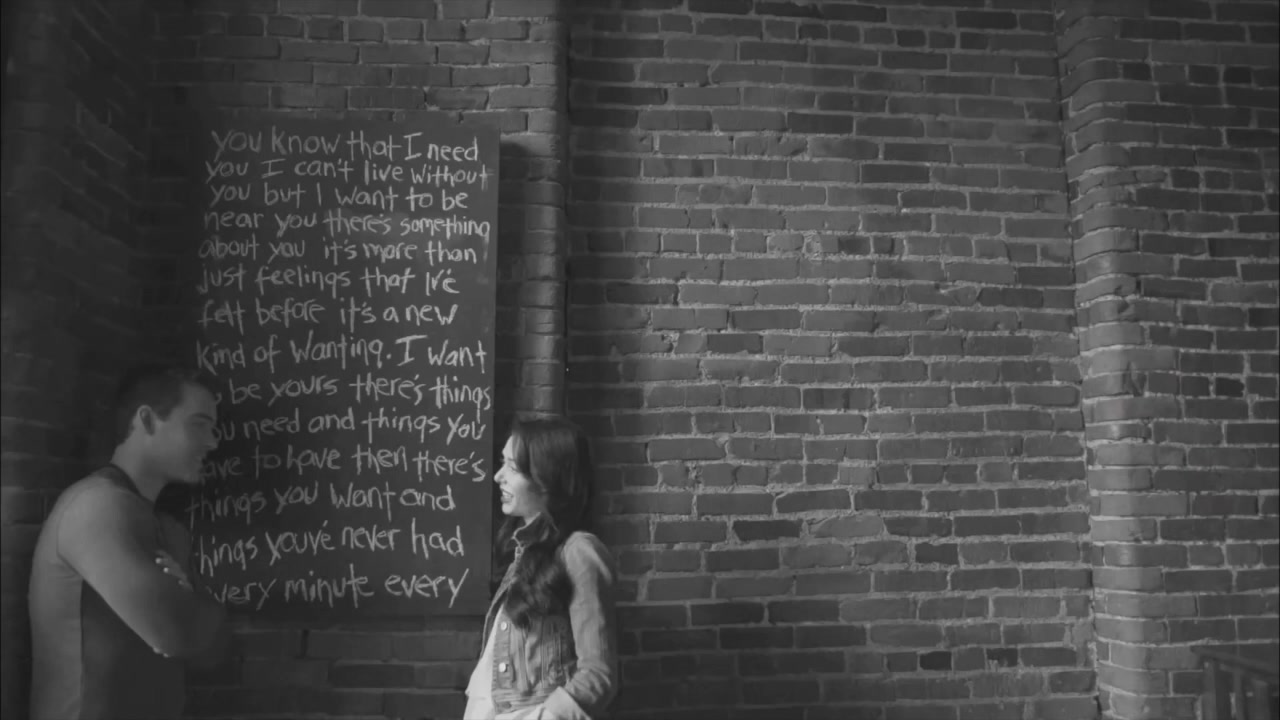 you know that I need
you I can't live without
you but I want to be
near you there's something
about you it's more than
just feelings that I've
felt before it's a new
kind of wanting. I want
be yours there's things
need and things you
to have then there's
things you want and
things you've never had
every minute every